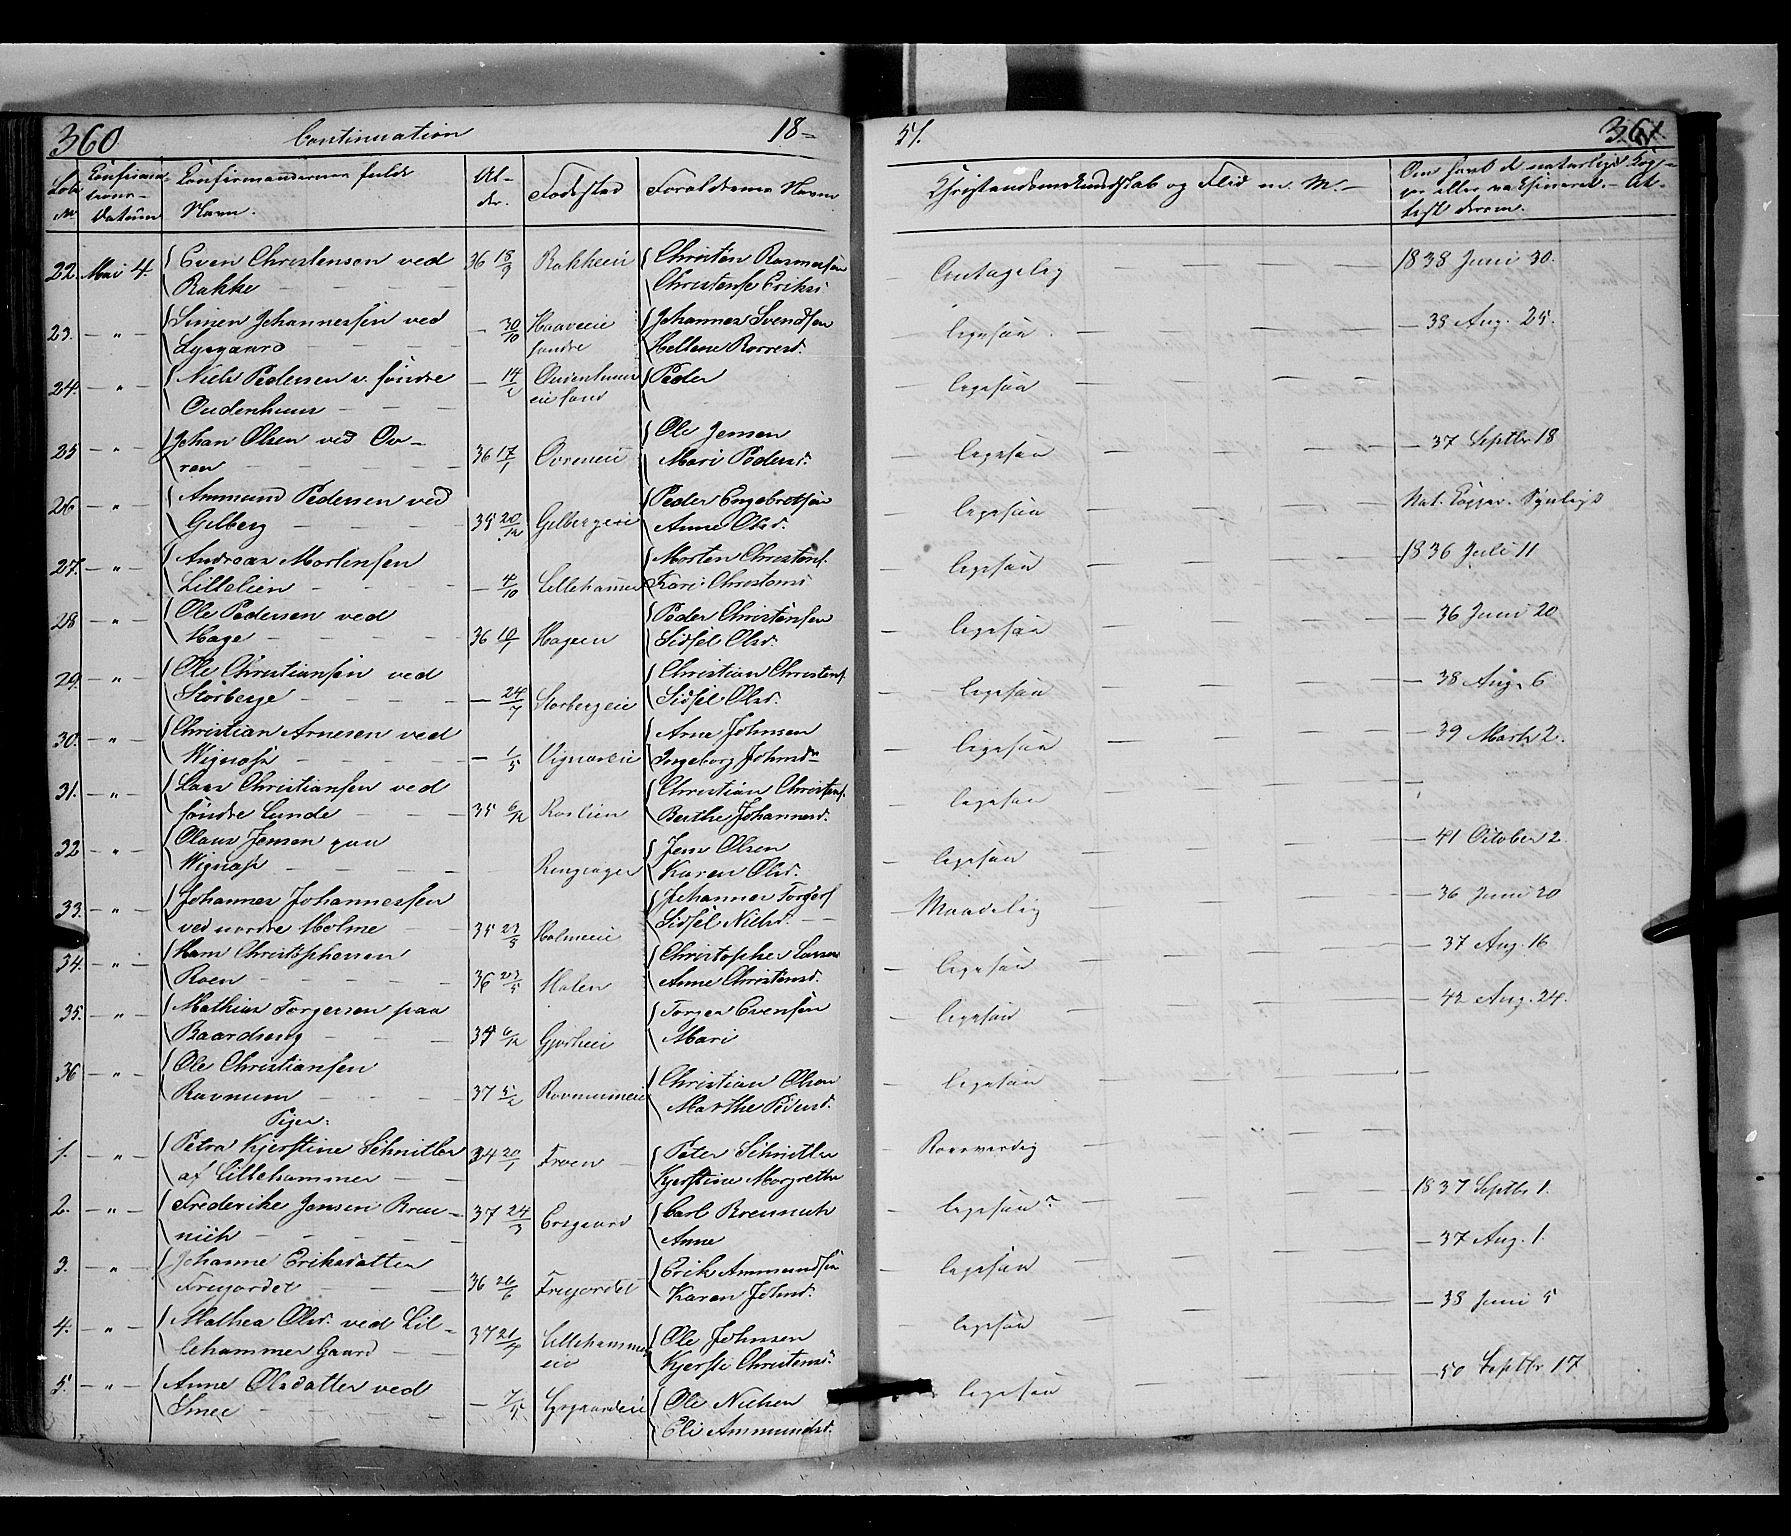 360 Continuation 18-
51. 361
Löbe No Confirma- tions- Datum Confirmandernes fulde Navn. Al- der. Fødested Forældrenes Navn
Christendomskundskab og Flid m. M.- Om havt de naturlige Kop- per eller vaksineret. - At- test derom.
22. Mai 4. Even Christensen ved 36 18/9 Rakkeeie Christen Rasmusen Antagelig - 1838 Juni 30.
Rakke - Christense Eriksd
23. - " - Simen Johannessen ved - 30/10 Haaveeie Johannes Svendsen ligesaa - 38 Aug. 25.
Lysgaard - søndre Hellene Borresd.
24. - " - Niels Pedersen v. søndre - 14/1 Oudenhuus Peder ligesaa -
Oudenhuus - eie sønd
25 - " - Johan Olsen ved Ov- 36 17/1 Ovreneie Ole Jensen ligesaa - 37 Septbr 18
ren - Mari Pedersd.
26 - " - Ammund Pedersen ved Peder Engebretsen ligesaa Nat. Kopper. Synligt
Gilberg - 35 20/12 Gilbergeie Anne Olsd.
27. - " - Andreas Mortensen Morten Christens. ligesaa - 1836 Juli 11
Lillelien - 4/10 Lillehammer Kari Christensd
28 - " - Ole Pedersen ved Peder Christensen ligesaa - 36 Juni 20
Hage - 36 10/1 Hageen Sidsel Olsd.
29. - " - Ole Christiansen ved Christian Christens. ligesaa - 38 Aug. 6
Storberge - 24/7 Storbergeie Sidsel Olsd.
30. - " - Christian Arnesen ved Arne Johnsen ligesaa - 39 Marts 2.
Wignæs - 1/5 Vignæseie Ingeborg Johnsd
31. - " - Lars Christiansen ved Christian Christens. ligesaa -
søndre Lunde - 35 6/12 Roslien Berthe Johannesd.
32 - " - Olaus Jensen paa Jens Olsen ligesaa - 41 October 2.
Wignæs - Ringsager Karen Olsd.
33. - " - Johannes Johannessen Johannes Torgers Maadelig - 36 Juni 20
ved nordre Holme - 35 23/5 Holmeeie Sidsel Nielsd. -
34. - " - Hans Christophersen Christopher Larsen ligesaa - 37 Aug. 16
Roen - 36 23/5 Holen Anne Christensd.
35. - " - Mathias Torgersen paa Torger Evensen ligesaa - 42 Aug. 24.
Baardseng - 35 6/12 Mari
36 - " - Ole Christiansen Christian Olsen ligesaa -
Ravnum - 37 5/2 Ravnumeie Marthe Pedersd.
Piger.
1. - " - Petra Kjerstine Schnitler 34 20/1 Froen - Peter Schnitler Roesværdig -
af Lillehammer - Kjerstine Margrethe
2. - " - Frederike Jensen Breu- 37 24/3 Carl Breunich ligesaa - 1837 Septbr 1.
nich - Anne
3. - " - Johanne Eriksdatter 36 26/6 Fregjordet Erik Ammundsen ligesaa - 37 Aug. 1.
Fregjordet - Karen Johnsd.
4. - " - Mathea Olsd. ved Lil- 37 21/4 Lillehammer Ole Johnsen ligesaa - 38 Juni 5
lehammer Gaard - eie Kjersti Christensd.
5. - " - Anne Olsdatter ved - 7/5 Lysgaardeie Ole Nielsen ligesaa - 50 Septbr 17
Smee - Eli Ammundsd.